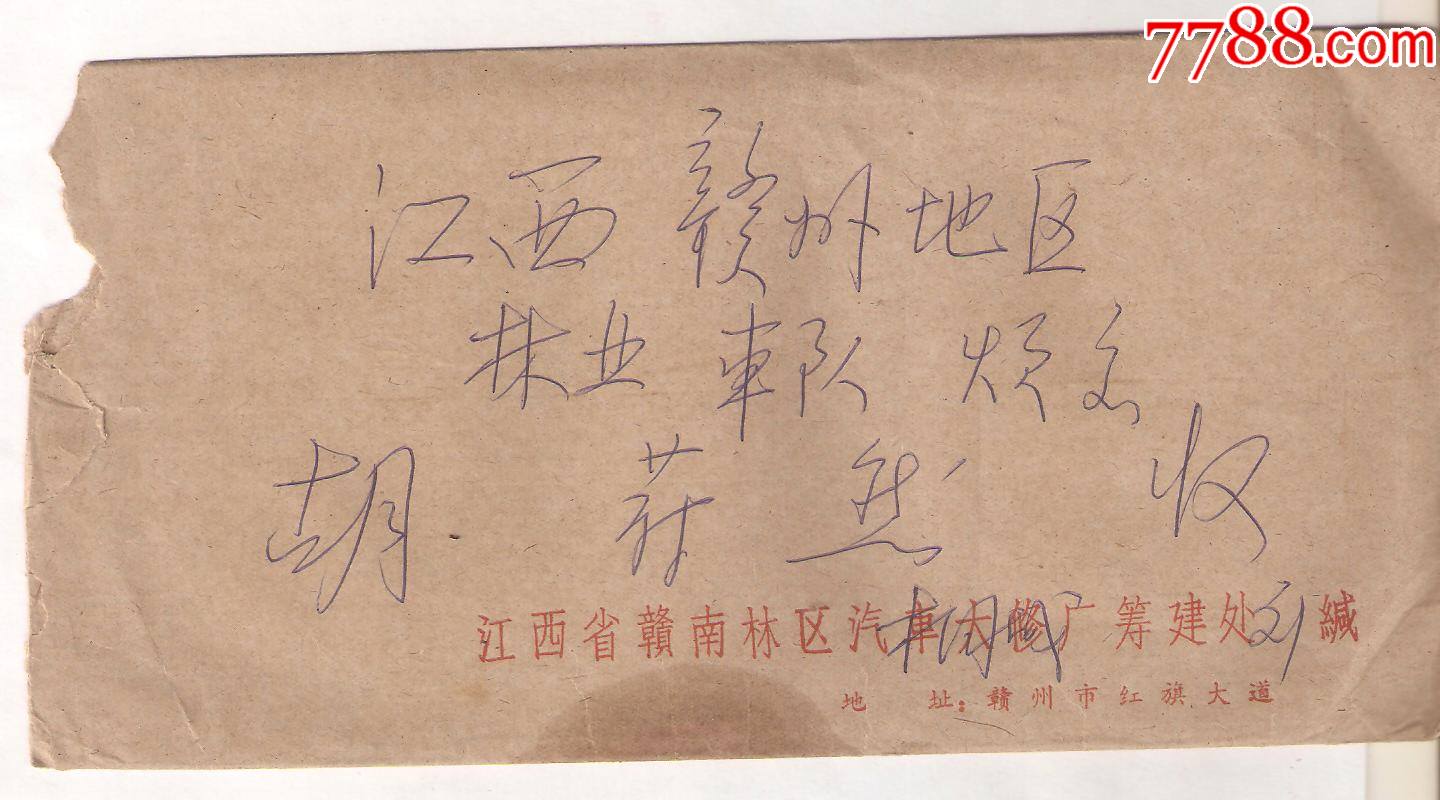 7788.com
江西赣州地区
林业車队 烦交
胡 收
江西省贛南林区汽車大修厂筹建处 刘 緘
地 址：赣州市红旗大道